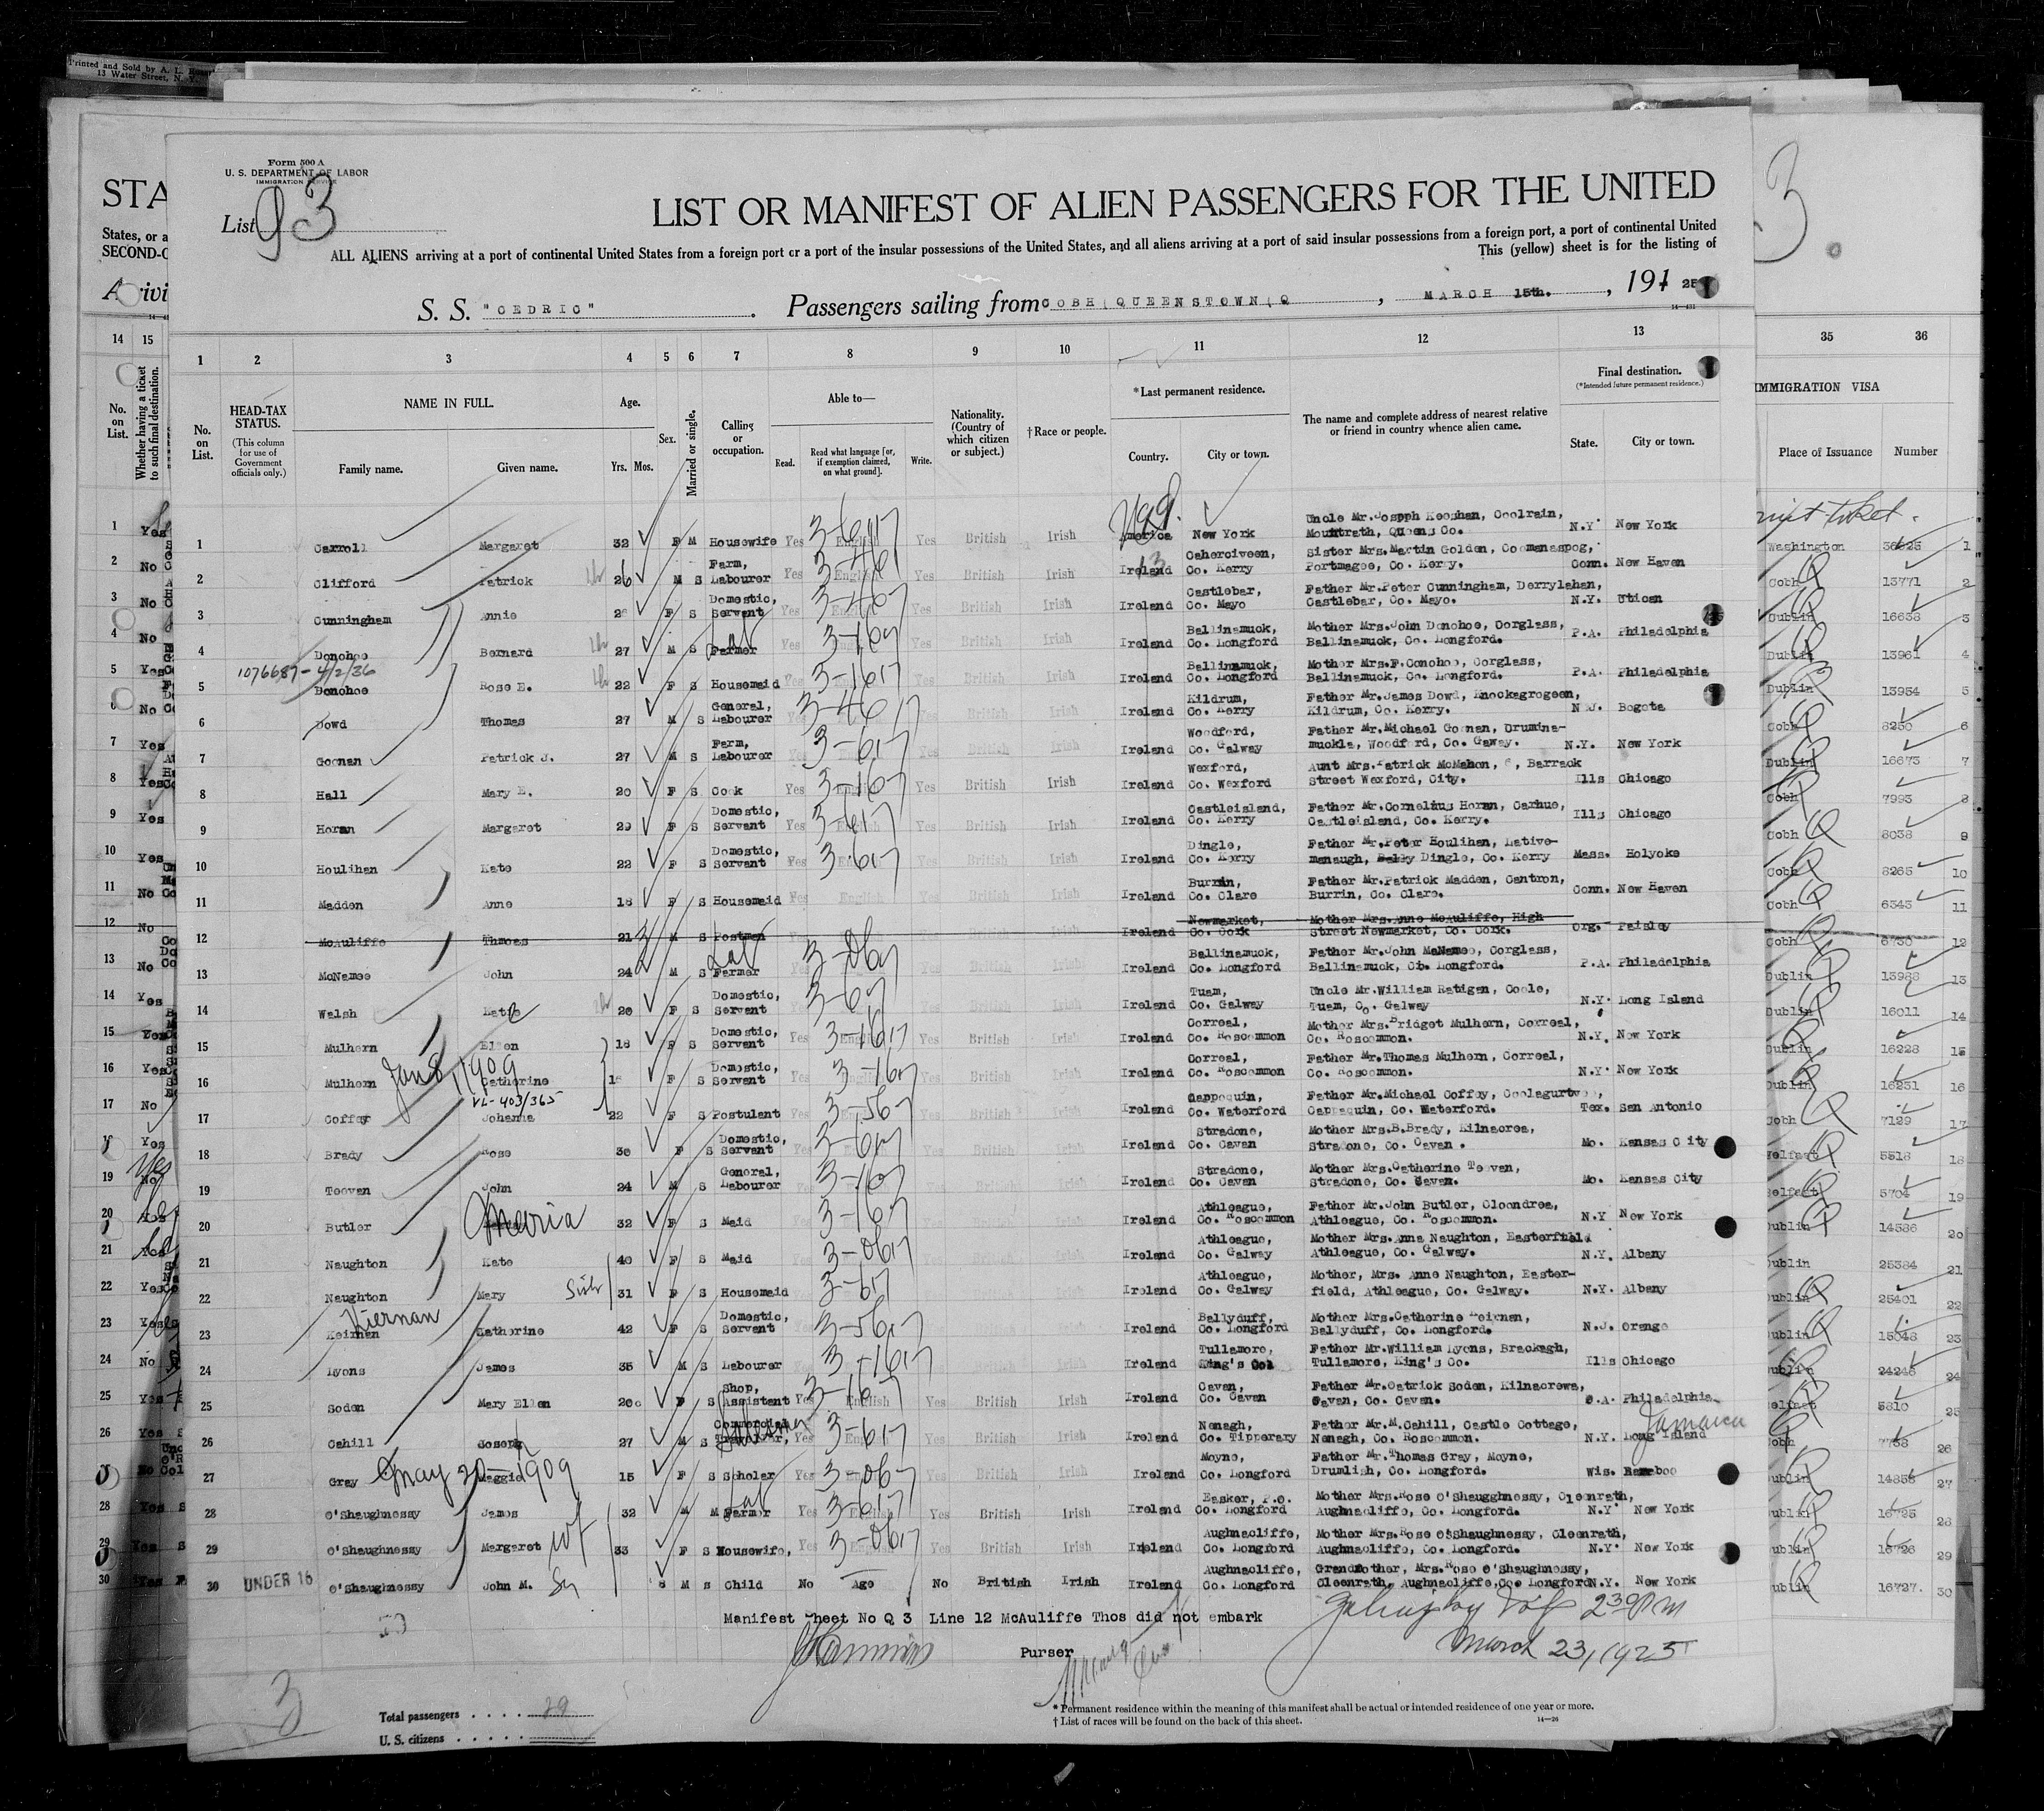 Printed and Sold by A. L.
13 Water Street, N. Y.
Form 500 A
U. S. DEPARTMENT OF LABOR
IMMIGRATION SERVICE
List 93
LIST OR MANIFEST OF ALIEN PASSENGERS FOR THE UNITED
ALL ALIENS arriving at a port of continental United States from a foreign port or a port of the insular possessions of the United States, and all aliens arriving at a port of said insular possessions from a foreign port, a port of continental United
This (yellow) sheet is for the listing of
S. S. "CEDRIC" Passengers sailing from COBH (QUEENSTOWN) Q , MARCH 15th. , 191 25
1 2 3 4 5 6 7 8 9 10 11 12 13
No. on List. HEAD-TAX STATUS. (This column for use of Government officials only.) NAME IN FULL. Family name. Given name. Age. Yrs. Mos. Sex. Married or single. Calling or occupation. Able to— Read. Read what language [or, if exemption claimed, on what ground]. Write. Nationality. (Country of which citizen or subject.) †Race or people. *Last permanent residence. Country. City or town. The name and complete address of nearest relative or friend in country whence alien came. Final destination. (*Intended future permanent residence.) State. City or town.
IMMIGRATION VISA
35 36
Place of Issuance Number
1 Carroll Margaret 32 F M Housewife Yes English Yes British Irish America New York Uncle Mr. Joseph Keeshan, Coolrain, Mountrath, Queens Co. N.Y. New York Washington 1
2 Clifford Patrick 26 M S Farm, Labourer Yes English Yes British Irish Ireland Caherciveen, Co. Kerry Sister Mrs. Martin Golden, Coomanaspog, Portmagee, Co. Kerry. Conn. New Haven Cobh 13771 2
3 Cunningham Annie F S Domestic, Servant Yes English Yes British Irish Ireland Castlebar, Co. Mayo Father Mr. Peter Cunningham, Derrylahan, Castlebar, Co. Mayo. N.Y. Utican Dublin 16638 3
4 Donohoe Bernard 27 M S Farmer Yes English Yes British Irish Ireland Ballinamuck, Co. Longford Mother Mrs. John Donohoe, Corglass, Ballinamuck, Co. Longford. P.A. Philadelphia Dublin 13961 4
1076687-4/2/36
5 Donohoe Rose E. 22 F S Housemaid Yes English Yes British Irish Ireland Ballinamuck, Co. Longford Mother Mrs. F. Donohoe, Corglass, Ballinamuck, Co. Longford. P.A. Philadelphia Dublin 13954 5
6 Dowd Thomas 27 M S General, Labourer Yes English Yes British Irish Ireland Kildrum, Co. Kerry Father Mr. James Dowd, Knockagrogeen, Kildrum, Co. Kerry. N.J. Bogota Cobh 8250 6
7 Goonan Patrick J. 27 M S Farm, Labourer Yes English Yes British Irish Ireland Woodford, Co. Galway Father Mr. Michael Goonan, Drumina-muckla, Woodford, Co. Gaway. N.Y. New York Dublin 16673 7
8 Hall Mary E. 20 F S Cook Yes English Yes British Irish Ireland Wexford, Co. Wexford Aunt Mrs. Patrick McMahon, Barrack Street Wexford, City. Ills Chicago Cobh 7993 8
9 Horan Margaret 29 F S Domestic, Servant Yes English Yes British Irish Ireland Castleisland, Co. Kerry Father Mr. Cornelius Horan, Carhue, Castleisland, Co. Kerry. Ills Chicago Cobh 8038 9
10 Houlihan Kate 22 F S Domestic, Servant Yes English Yes British Irish Ireland Dingle, Co. Kerry Father Mr. Peter Houlihan, Lative-manaugh, Dingle, Co. Kerry Mass. Holyoke Cobh 8265 10
11 Madden Anne 18 F S Housemaid Yes English Yes British Irish Ireland Burrin, Co. Clare Father Mr. Patrick Madden, Cantron, Burrin, Co. Clare. Conn. New Haven Cobh 6343 11
12 McAuliffe Thmoas 21 M S Postman Ireland Newmarket, Co. Cork Mother Mrs. Anne McAuliffe, High Street Newmarket, Co. Cork. Org. Paisley Cobh 6730 12
13 McNamee John 24 M S Farmer Ireland Ballinamuck, Co. Longford Father Mr. John McNamee, Corglass, Ballinamuck, Co. Longford. P.A. Philadelphia Dublin 13988 13
14 Walsh Katie 20 F S Domestic, Servant Yes English Yes British Irish Ireland Tuam, Co. Galway Uncle Mr. William Ratigan, Coole, Tuam, Co. Galway N.Y. Long Island Dublin 16011 14
15 Mulhern Ellen 18 F S Domestic, Servant Yes English Yes British Irish Ireland Correal, Co. Roscommon Mother Mrs. Bridget Mulhern, Correal, Co. Roscommon. N.Y. New York Dublin 16228 15
Jan 8, 1909
16 Mulhern Catherine F S Domestic, Servant Yes English Yes British Irish Ireland Correal, Co. Roscommon Father Mr. Thomas Mulhern, Correal, Co. Roscommon. N.Y. New York Dublin 16231 16
VL-403/365
17 Coffey Johanna 22 F S Postulant Yes English Yes British Irish Ireland Cappoquin, Co. Waterford Father Mr. Michael Coffey, Coolagurtven, Cappaquin, Co. Waterford. Tex. San Antonio Cobh 7129 17
18 Brady Rose 30 F S Domestic, Servant Yes English Yes British Irish Ireland Stradone, Co. Cavan Mother Mrs. B. Brady, Kilnacrea, Stradone, Co. Cavan. Mo. Kansas City Belfast 5518 18
19 Teevan John 24 M S General, Labourer Yes English Yes British Irish Ireland Stradone, Co. Cavan Mother Mrs. Catherine Teevan, Stradone, Co. Cavan. Mo. Kansas City Belfast 5704 19
20 Butler Maria 32 F S Maid Ireland Athleague, Co. Roscommon Father Mr. John Butler, Cloondrea, Athleague, Co. Roscommon. N.Y New York Dublin 14536 20
21 Naughton Kate 40 F S Maid Ireland Athleague, Co. Galway Mother Mrs. Anna Naughton, Easterfield Athleague, Co. Galway. N.Y. Albany Dublin 25384 21
22 Naughton Mary Sister 31 F S Housemaid Ireland Athleague, Co. Galway Mother, Mrs. Anne Naughton, Easter-field, Athleague, Co. Galway. N.Y. Albany Dublin 25401 22
Kiernan
23 Keirnan Catherine 42 F S Domestic, Servant Ireland Ballyduff, Co. Longford Mother Mrs. Catherine Keirnan, Ballyduff, Co. Longford. N.J. Orange Dublin 15048 23
24 Lyons James 35 M S Labourer Ireland Tullamore, King's Co. Father Mr. William Lyons, Brackagh, Tullamore, King's Co. Ills Chicago Dublin 24248 24
25 Soden Mary Ellen 20 F S Shop, Assistant Yes English Yes British Irish Ireland Cavan, Co. Cavan Father Mr. Catrick Soden, Kilnacrewa, Cavan, Co. Cavan. P.A. Philadelphia Belfast 5810 25
Jamaica
26 Cahill Joseph 27 M S Commercial Traveller, Yes English Yes British Irish Ireland Nenagh, Co. Tipperary Father Mr. M. Cahill, Castle Cottage, Nenagh, Co. Roscommon. N.Y. Long Island Cobh 7758 26
May 20-1909
27 Gray Maggie 15 F S Scholar Yes English Yes British Irish Ireland Moyne, Co. Longford Father Mr. Thomas Gray, Moyne, Drumlish, Co. Longford. Wis. Dublin 14858 27
28 O'Shaughnessy James 32 M M Farmer Yes English Yes British Irish Ireland Easker, P.O. Co. Longford Mother Mrs. Rose O'Shaugghnessy, Cleenrath, Aughnacliffe, Co. Longford. N.Y. New York Dublin 16725 28
29 O'Shaughnessy Margaret wf 33 F S Housewife, Yes English Yes British Irish Ireland Aughnacliffe, Co. Longford Mother Mrs. Rose O'Shaughnessy, Cleenrath, Aughnacliffe, Co. Longford. N.Y. New York Dublin 16726 29
30 UNDER 16 O'Shaughnessy John M. Sn 8 M S Child No Age No British Irish Ireland Aughnacliffe, Co. Longford Grandmother, Mrs. Rose O'Shaughnessy, Cleenrath, Aughnacliffe, Co. Longford N.Y. New York Dublin 16727. 30
Manifest Sheet No Q 3 Line 12 McAuliffe Thos did not embark
Purser
2 30 PM
March 23, 1925
3
Total passengers . . . . 29
U. S. citizens . . . . .
* Permanent residence within the meaning of this manifest shall be actual or intended residence of one year or more.
† List of races will be found on the back of this sheet.
14—26